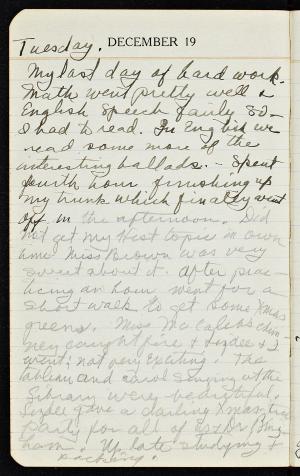 Tuesday. DECEMBER 19
My last day of hard work.
Math went pretty well &
English Speech fairly so -
I had to read. In Eng. we
read some more of the
interesting ballads. - Spent
fourth hour finishing up
my trunk which finally went
off in the afternoon. Did
not get my Hist topic in on
time Miss Brown was very
sweet about it. After prac-
ticing an hour went for a
short walk to get some Xmas
greens. Miss McCaleb's chim-
ney caught fire & Lydee & I
went; not very exciting. The
tableau and carol singing at the
library were beautiful.
Lydee gave a darling Xmas tree
party for all of us & Dr Bing-
ham. Up late studying &
packing.